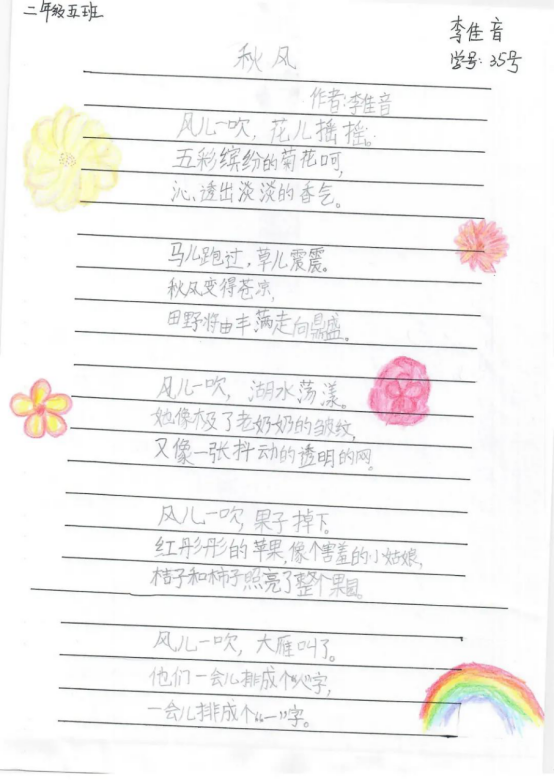 二年级五班
李佳音
学号：35号
秋风
作者：李佳音
风儿一吹，花儿摇摇。
五彩缤纷的菊花呵，
沁透出淡淡的香气。
马儿跑过，草儿震震。
秋风变得苍凉，
田野将由丰满走向鼎盛。
风儿一吹，湖水荡漾。
她像极了老奶奶的皱纹，
又像一张抖动的透明的网。
风儿一吹，果子掉下。
红彤彤的苹果，像个害羞的小姑娘，
桔子和柿子照亮了整个果园。
风儿一吹，大雁叫了。
他们一会儿排成个“人”字，
一会儿排成个“一”字。